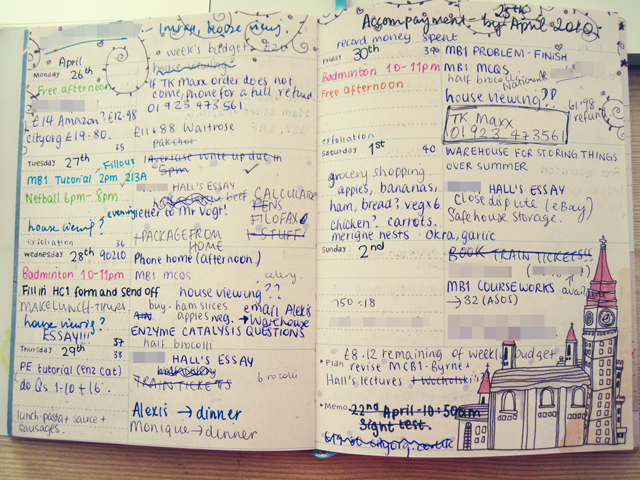 April
Monday 26th
Free afternoon
£14 Amazon? £12.98
cityorg £19.80.
35
Tuesday 27th
Fillour
MB1 Tutorial 2pm 213A
Netball 6pm - 8pm
evening
house viewing?
exfoliation 36
Wednesday 28th 90210
Badminton 10-11pm
Fill in HC1 form and send off
MAKE LUNCH - Thurs
house viewing?
ESSAY!!!
37
Thursday 29th 38
PE tutorial (enz cat)
do Qs 1-10 + 16.
lunch-pasta + sauce +
sausages.
house viewing.
week's budget £20
house viewing
If TK Maxx order does not
come, phone for a full refund
01923 473561
£11.88 Waitrose
pak choi
Average write up due in
5pm
HALL'S ESSAY
beef
CALCULATOR
PENS
FILOFAX
STUFF
letter to Mr Vogt!
+PACKAGE FROM
HOME
Phone home (afternoon)
MB1 MCQS
celery.
house viewing??
buy - ham slices
apples
email Alexis
→ Warehouse
ENZYME CATALYSIS QUESTIONS
half brocolli
HALL'S ESSAY
TRAIN TICKETS
brocolli
Alexis → dinner
Monique → dinner
Accompayment - by 25th April 2010.
record money spent
Friday 30th 39
Badminton 10-11pm
Free afternoon
exfoliation
Saturday 1st 40
grocery shopping
apples, bananas,
ham, bread? veg x6
chicken? carrots.
merigne nests okra, garlic
Sunday 2nd
£8.12 remaining of weekly budget
Plan revise MCB1 - Byrne
Hall's lectures
Memo 22nd April - 10:50am
Sight test.
MB1 PROBLEM - FINISH
MB1 MCQS
half brocolli
Nationwide
house viewing??
£61.98
refund
TK Maxx
01923 473561
WAREHOUSE FOR STORING THINGS
OVER SUMMER
HALL'S ESSAY
Close dispute (eBay)
Safehouse storage.
BOOK TRAIN TICKETS!!
MB1 COURSEWORKS
→ 32 (ASOS)